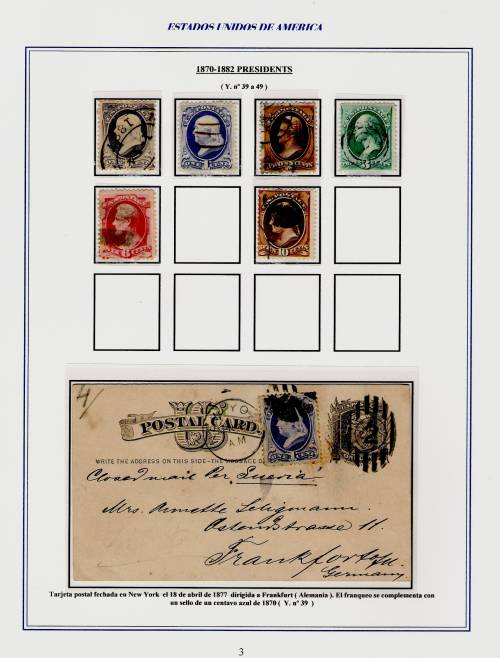 ESTADOS UNIDOS DE AMERICA
1870-1882 PRESIDENTS
( Y. nº 39 a 49 )
POSTAL CARD.
WRITE THE ADDRESS ON THIS SIDE-THE MESSAGE
Closed mail Per Suevia
Mrs. Annette Seligmann.
Ostendstrasse 11.
Frankfort o/m.
Germany.
Tarjeta postal fechada en New York el 18 de abril de 1877 dirigida a Frankfurt ( Alemania ). El franqueo se complementa con
un sello de un centavo azul de 1870 ( Y. nº 39 )
3